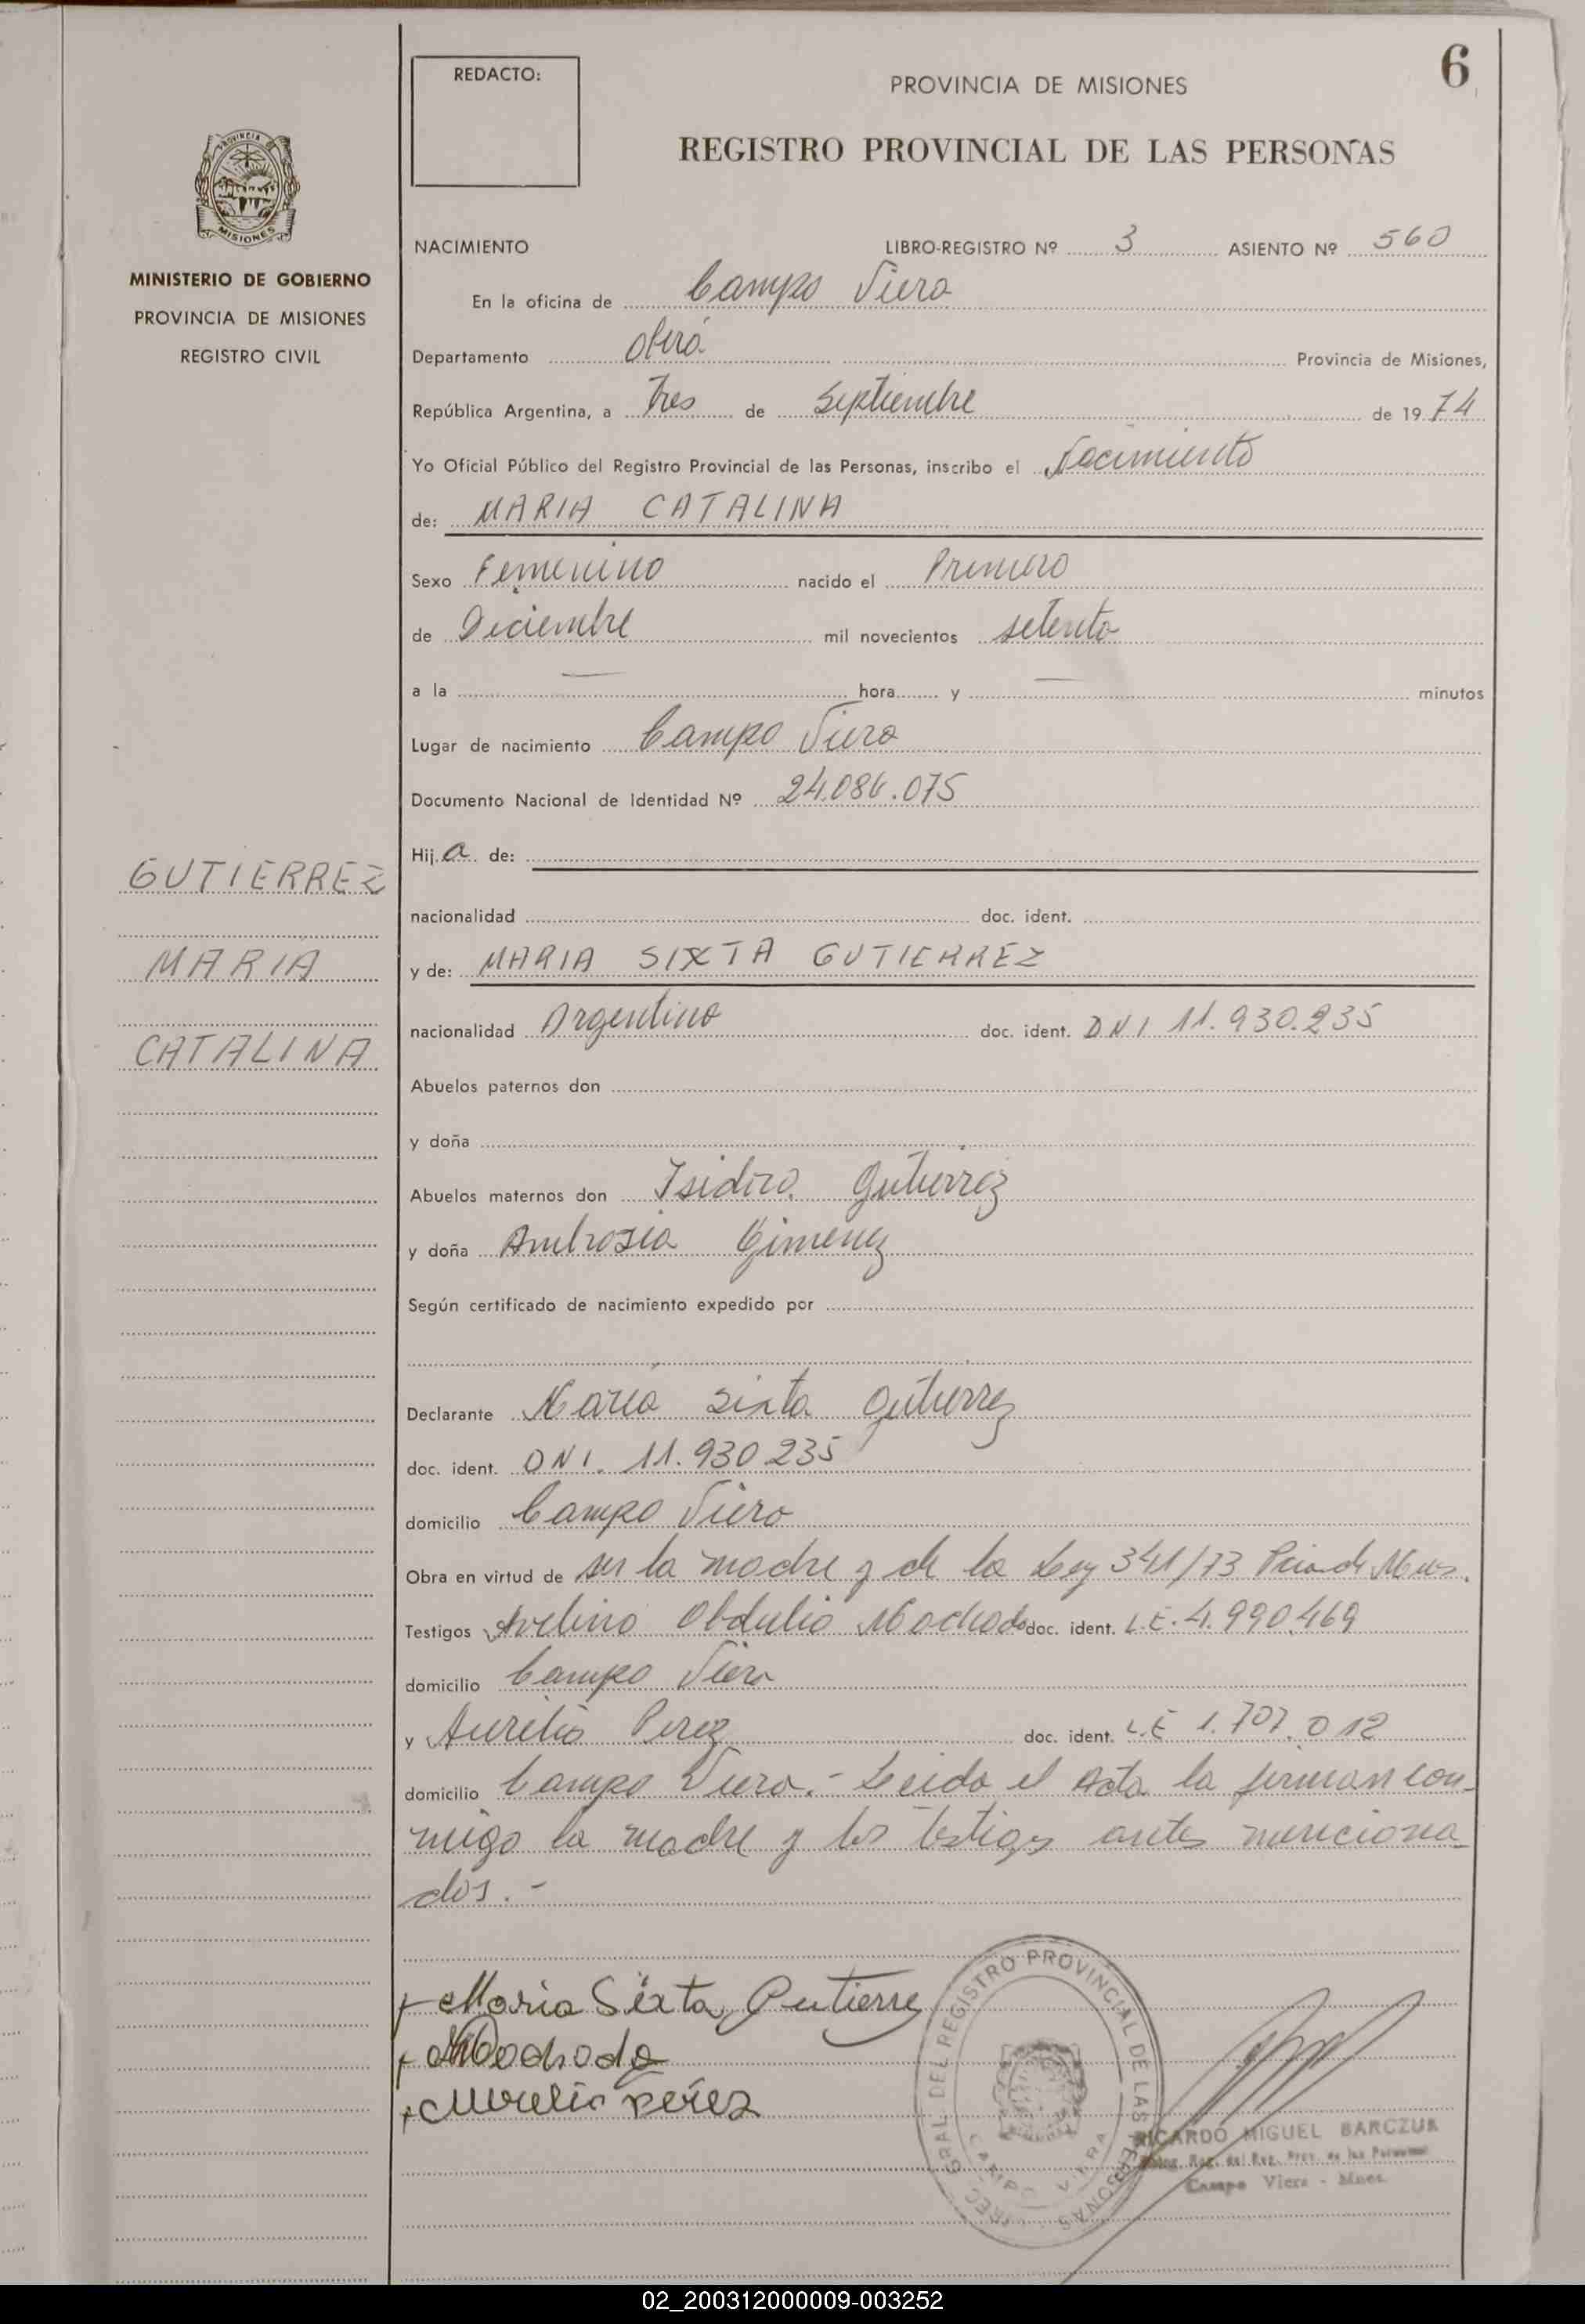 6
REDACTO:
PROVINCIA DE MISIONES
REGISTRO PROVINCIAL DE LAS PERSONAS
PROVINCIA
MISIONES
MINISTERIO DE GOBIERNO
PROVINCIA DE MISIONES
REGISTRO CIVIL
NACIMIENTO LIBRO-REGISTRO Nº 3 ASIENTO Nº 560
En la oficina de Campo Viera
Departamento Oberá Provincia de Misiones,
República Argentina, a Tres de Septiembre de 1974
Yo Oficial Público del Registro Provincial de las Personas, inscribo el Nacimiento
de: MARIA CATALINA
Sexo Femenino nacido el Primero
de Diciembre mil novecientos setenta
a la — hora y — minutos
Lugar de nacimiento Campo Viera
Documento Nacional de Identidad Nº 24.086.075
Hija de:
nacionalidad doc. ident.
GUTIERREZ
MARIA
CATALINA
y de: MARIA SIXTA GUTIERREZ
nacionalidad Argentina doc. ident. DNI 11.930.235
Abuelos paternos don
y doña
Abuelos maternos don Isidro Gutierrez
y doña Ambrosia Gimenez
Según certificado de nacimiento expedido por
Declarante Maria Sixta Gutierrez
doc. ident. DNI. 11.930.235
domicilio Campo Viera
Obra en virtud de ser la madre y de la Ley 341/73 Pcia de Mnes.
Testigos Avelino Obdulio Machado doc. ident. L.E. 4.990.469
domicilio Campo Viera
y Aurelio Perez doc. ident. L.E 1.707.012
domicilio Campo Viera.- Leida el Acta la firman con-
migo la madre y los testigos antes menciona-
dos.-
+ Maria Sixta Gutierrez
+ Machado
+ Aurelio perez
DIREC. GRAL. DEL REGISTRO PROVINCIAL DE LAS PERSONAS
CAMPO VIERA
RICARDO MIGUEL BARCZUK
Reg. del Reg. Prov. de las Personas
Campo Viera - Mnes.
02_200312000009-003252